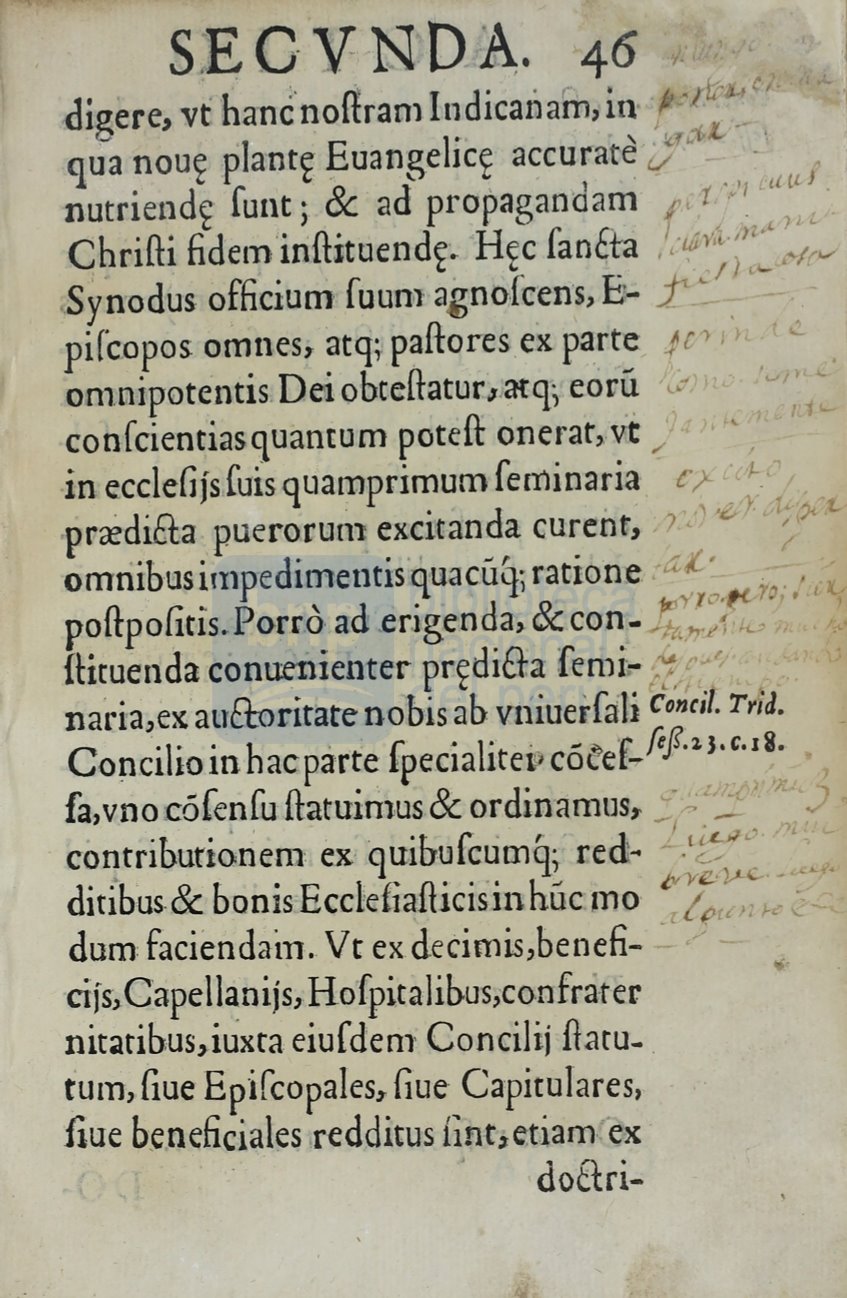 SECVNDA. 46
digere, vt hanc noſtram Indicanam, in
qua nouę plantę Euangelicę accuratè
nutriendę ſunt; & ad propagandam
Chriſti fidem inſtituendę. Hęc ſancta
Synodus officium ſuum agnoſcens, E-
piſcopos omnes, atq; paſtores ex parte
omnipotentis Dei obteſtatur, atq; eorū
conſcientias quantum poteſt onerat, vt
in eccleſijs ſuis quamprimum ſeminaria
prædicta puerorum excitanda curent,
omnibus impedimentis quacūq́; ratione
poſtpoſitis. Porrò ad erigenda, & con-
ſtituenda conuenienter prędicta ſemi-
naria, ex auctoritate nobis ab vniuerſali
Concilio in hac parte ſpecialiter cōceſ-
ſa, vno cōſenſu ſtatuimus & ordinamus,
contributionem ex quibuſcumq́; red-
ditibus & bonis Eccleſiaſticis in hūc mo
dum faciendam. Vt ex decimis, benefi-
cijs, Capellanijs, Hoſpitalibus, confrater
nitatibus, iuxta eiuſdem Concilij ſtatu-
tum, ſiue Epiſcopales, ſiue Capitulares,
ſiue beneficiales redditus ſint, etiam ex
doctri-
gar
perinde
como seme
jantemente
excito
Concil. Trid.
ſeſſ. 23. c. 18.
luego muy
breve